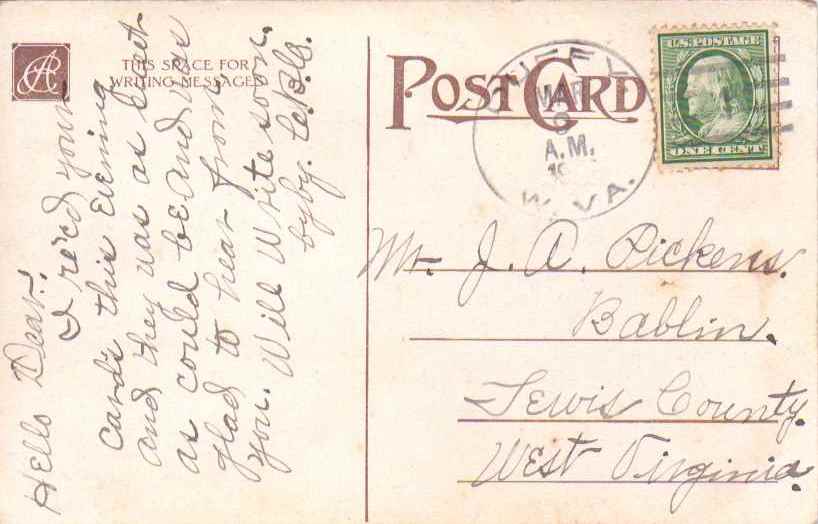 THIS SPACE FOR
WRITING MESSAGES
Hello Dear!
I rec'd your
cards this Evening
and they was as Sweet
as could be and was
glad to hear from
you. Will Write soon.
byby. C.B.G.
POST CARD
MAR
A.M.
W. VA.
U.S. POSTAGE
ONE CENT
Mr. J. A. Pickens.
Bablin.
Lewis County.
West Virginia.